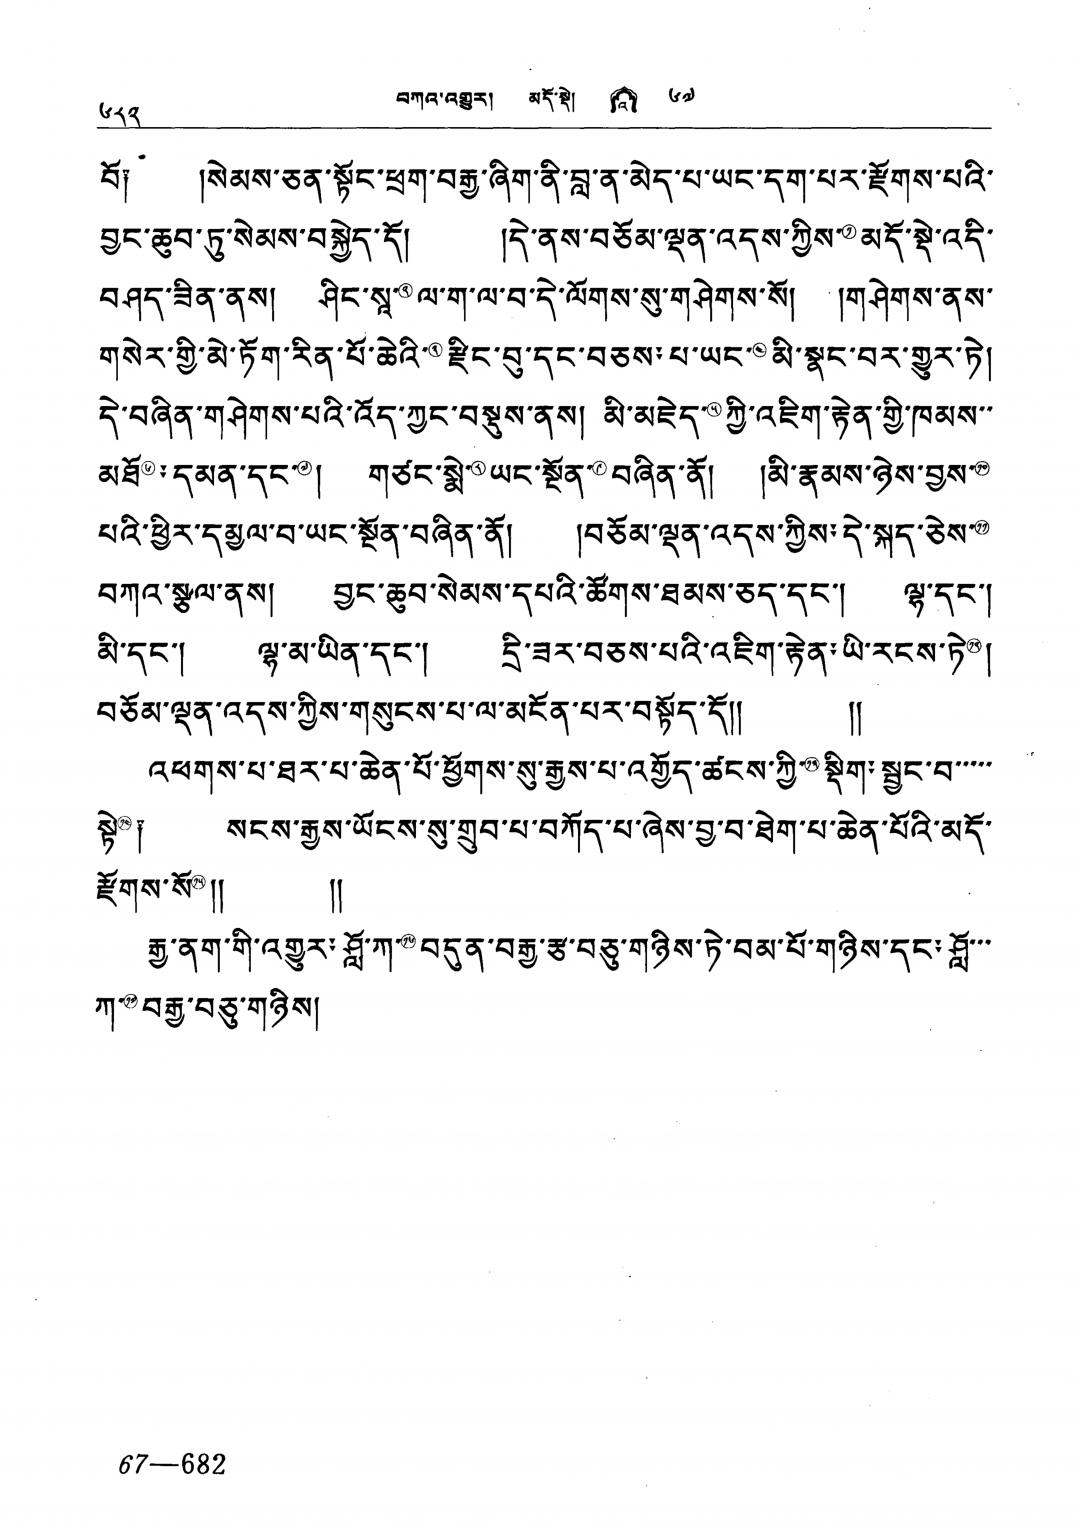 ༦༨༢ བཀའ་འགྱུར། མདོ་སྡེ། འ ༦༧
བོ༑ །སེམས་ཅན་སྟོང་ཕྲག་བརྒྱ་ཞིག་ནི་བླ་ན་མེད་པ་ཡང་དག་པར་རྫོགས་པའི་
བྱང་ཆུབ་ཏུ་སེམས་བསྐྱེད་དོ། །དེ་ནས་བཅོམ་ལྡན་འདས་ཀྱིས་①མདོ་སྡེ་འདི་
བཤད་ཟིན་ནས། ཤིང་སཱ་②ལ་ག་ལ་བ་དེ་ལོགས་སུ་གཤེགས་སོ། །གཤེགས་ནས་
གསེར་གྱི་མེ་ཏོག་རིན་པོ་ཆེའི་③རྫིང་བུ་དང་བཅས་པ་ཡང་④མི་སྣང་བར་གྱུར་ཏེ།
དེ་བཞིན་གཤེགས་པའི་འོད་ཀྱང་བསྡུས་ནས། མི་མཇེད་⑤ཀྱི་འཇིག་རྟེན་གྱི་ཁམས་
མཐོ⑥་དམན་དང་⑦། གཙང་སྨེ་⑧ཡང་སྔོན་⑨བཞིན་ནོ། །མི་རྣམས་ཉེས་བྱས་⑩
པའི་ཕྱིར་དམྱལ་བ་ཡང་སྔོན་བཞིན་ནོ། །བཅོམ་ལྡན་འདས་ཀྱིས་དེ་སྐད་ཅེས་⑪
བཀའ་སྩལ་ནས། བྱང་ཆུབ་སེམས་དཔའི་ཚོགས་ཐམས་ཅད་དང་། ལྷ་དང་།
མི་དང་། ལྷ་མ་ཡིན་དང་། དྲི་ཟར་བཅས་པའི་འཇིག་རྟེན་ཡི་རངས་ཏེ⑫།
བཅོམ་ལྡན་འདས་ཀྱིས་གསུངས་པ་ལ་མངོན་པར་བསྟོད་དོ།། །།
འཕགས་པ་ཐར་པ་ཆེན་པོ་ཕྱོགས་སུ་རྒྱས་པ་འགྱོད་ཚངས་ཀྱི་⑬སྡིག་སྦྱང་བ་
སྟེ⑭༑ སངས་རྒྱས་ཡོངས་སུ་གྲུབ་པ་བཀོད་པ་ཞེས་བྱ་བ་ཐེག་པ་ཆེན་པོའི་མདོ་
རྫོགས་སོ⑮།། །།
རྒྱ་ནག་གི་འགྱུར་ཤློ་ཀ་⑯བདུན་བརྒྱ་རྩ་བཅུ་གཉིས་ཏེ་བམ་པོ་གཉིས་དང་ཤློ་
ཀ་⑰བརྒྱ་བཅུ་གཉིས།
67—682